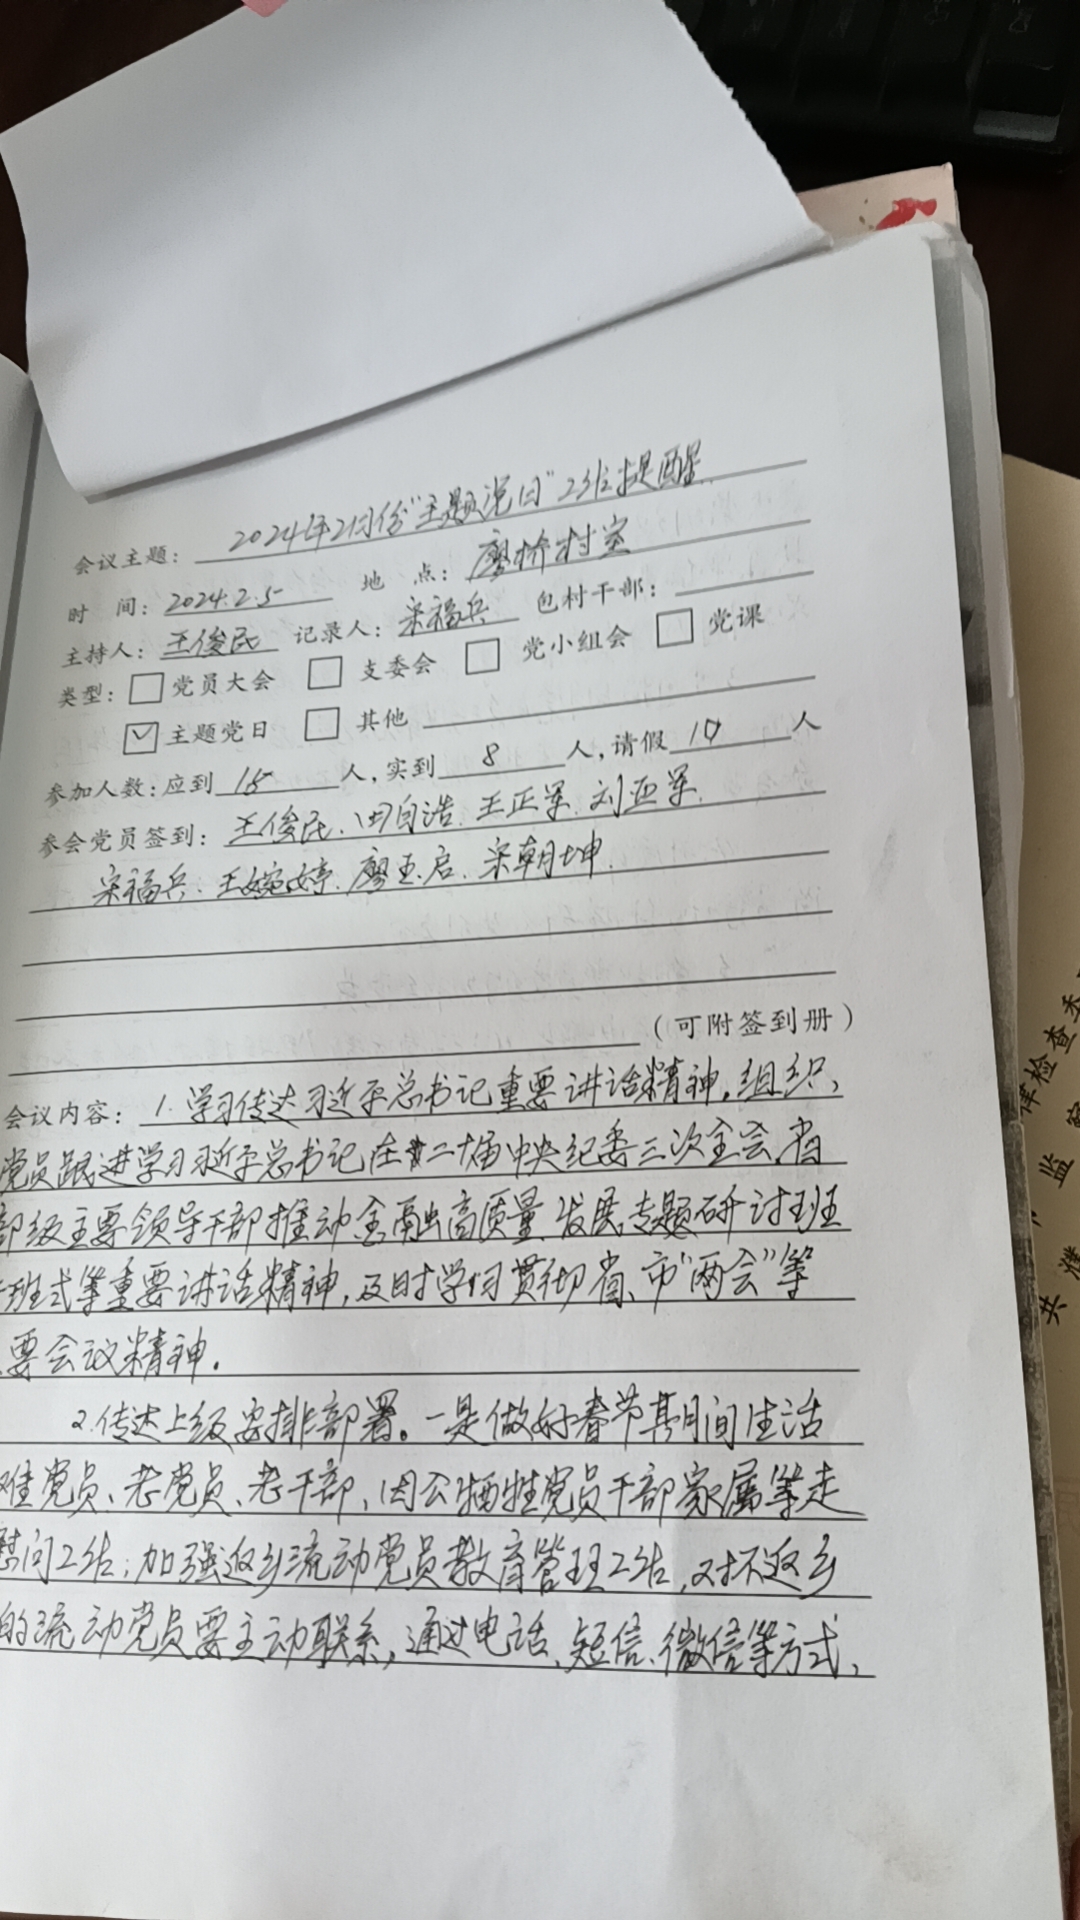 会议主题：2024年2月份“主题党日”工作提醒
时 间：2024.2.5 地 点：廖桥村室
主持人：王俊民 记录人：宋福兵 包村干部：
类型：□党员大会 □支委会 □党小组会 □党课
☑主题党日 □其他
参加人数：应到18人，实到8人，请假10人
参会党员签到：王俊民、田自浩、王正军、刘亚军、
宋福兵、王婉婷、廖玉启、宋朝坤.
（可附签到册）
会议内容：1.学习传达习近平总书记重要讲话精神，组织、
党员跟进学习习近平总书记在二十届中央纪委三次全会、省
部级主要领导干部推动金融高质量发展专题研讨班
班式等重要讲话精神，及时学习贯彻省、市“两会”等
要会议精神.
2.传达上级安排部署。一是做好春节期间生活
难党员、老党员、老干部、因公牺牲党员干部家属等走
慰问工作；加强返乡流动党员教育管理工作，对不返乡
的流动党员要主动联系，通过电话、短信、微信等方式，
律检查委
监
共 濮